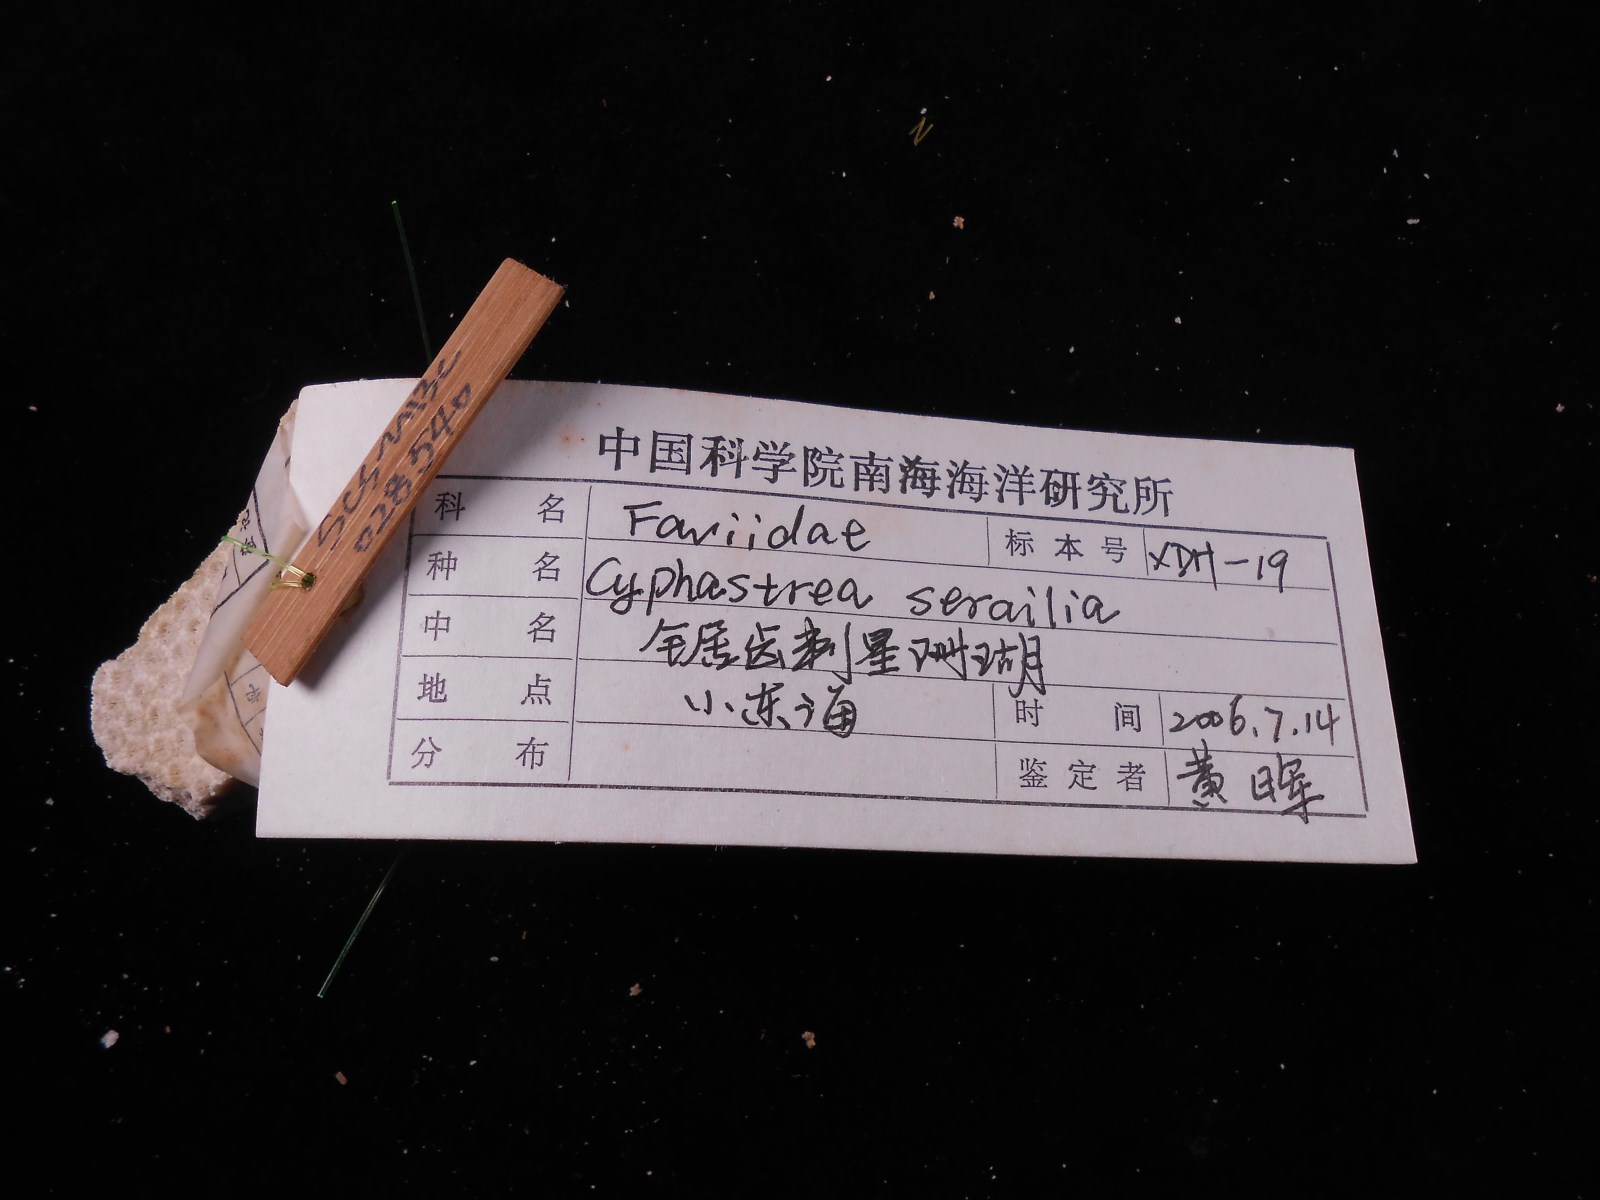 中国科学院南海海洋研究所
科名 Faviidae 标本号 XDH-19
种名 Cyphastrea serailia
中名 锯齿刺星珊瑚
地点 小东海 时间 2006.7.14
分布 鉴定者 黄晖
028540